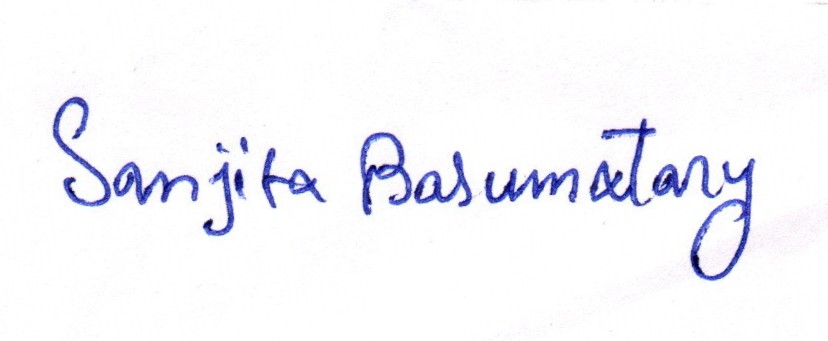 Sanjita Basumatary